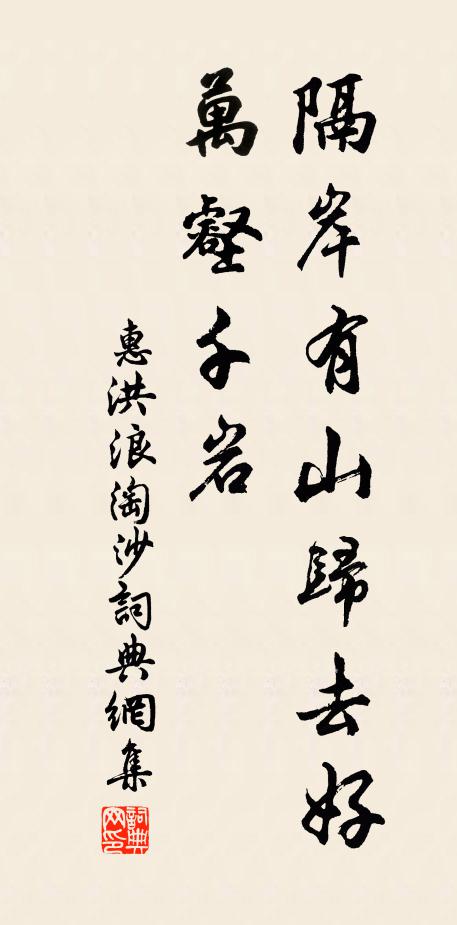 隔岸有山歸去好
萬壑千岩
惠洪浪淘沙詞典網集
詞典網印